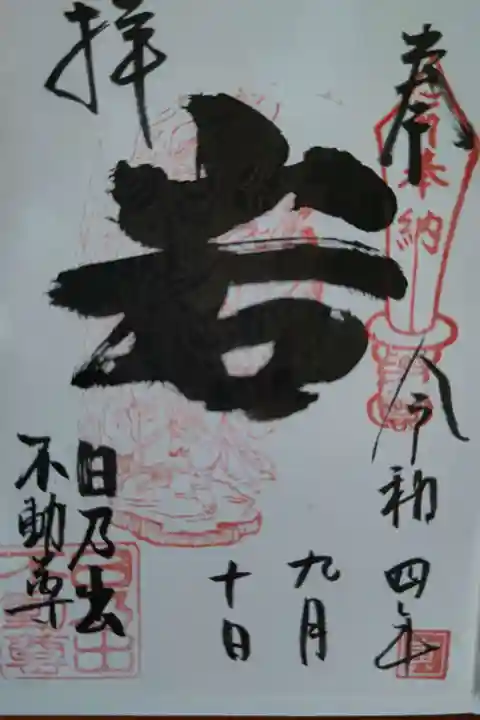 奉
拝
岩
奉納
令和四年
九月
十日
日乃出
不動尊